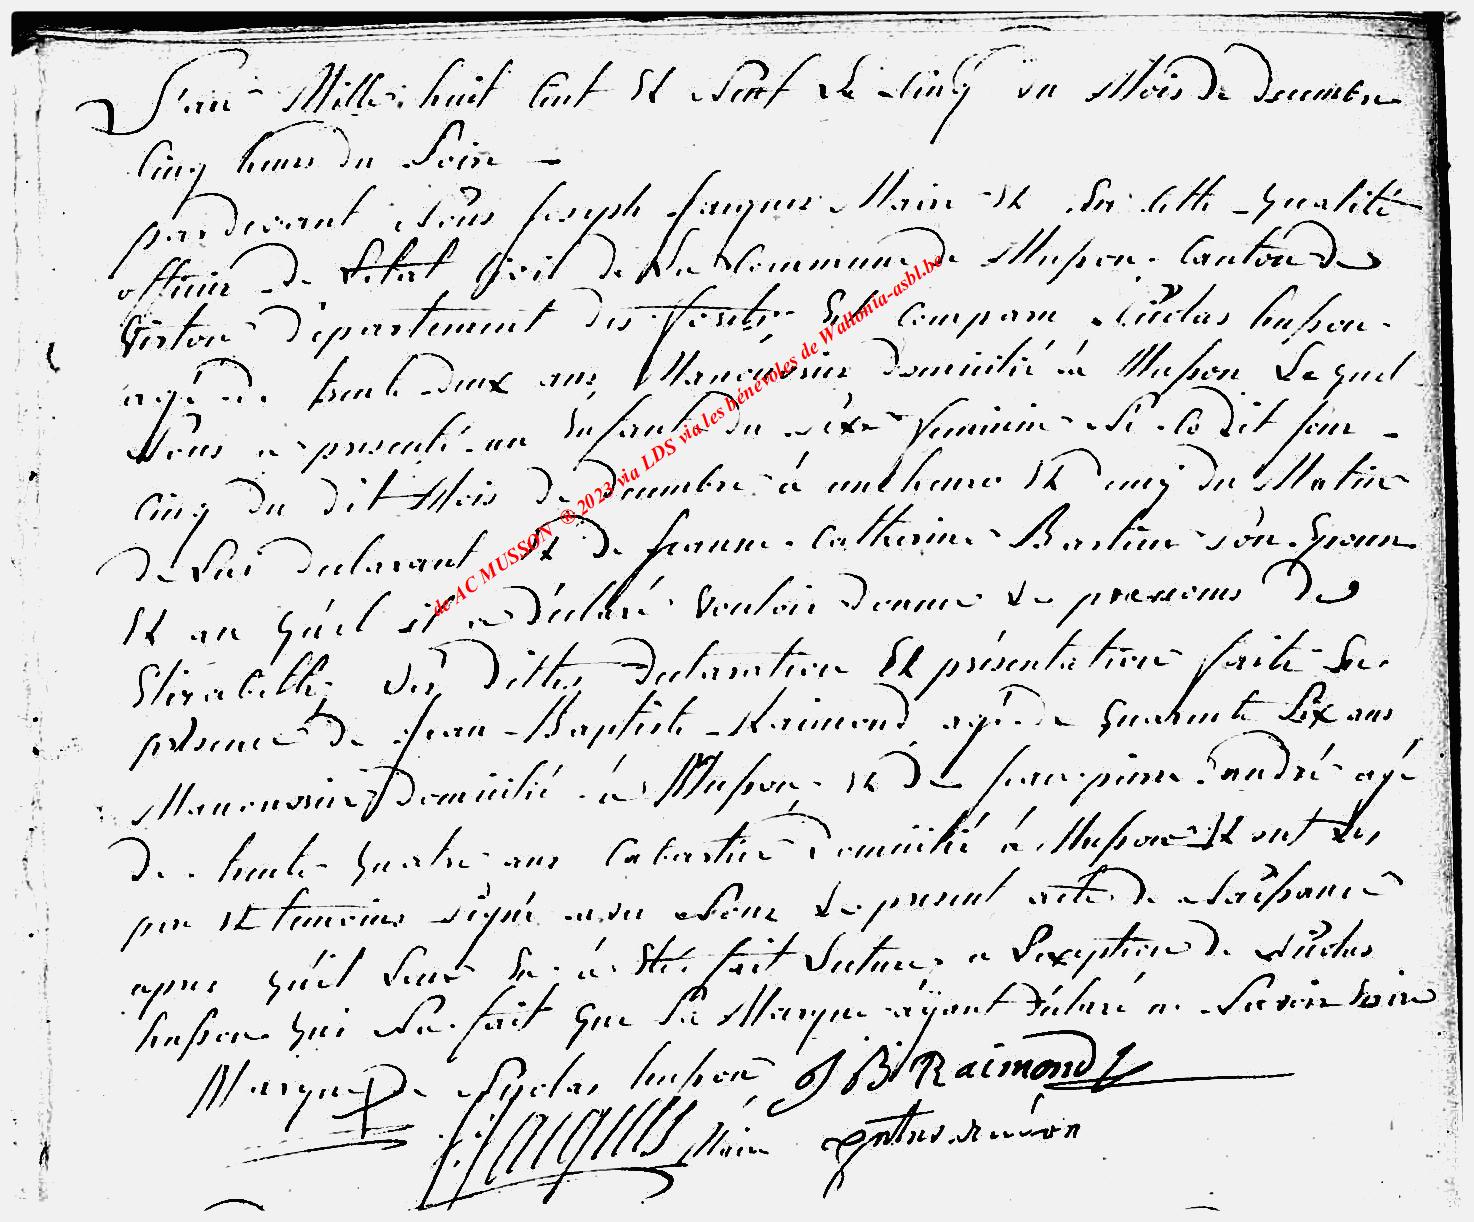 L'an Mille huit Cent Et Neuf Le Cinq du Mois de decembre
Cinq heures du Soir —
pardevant Nous joseph jacques Maire Et En Cette qualité
officier de L'état Civil de La Commune de Musson Canton de
Virton departement des forets Est Comparu Nicolas husson
agé de trente deux ans Manouvrier domicilié à Musson Lequel
Nous a presenté un Enfant du sexe feminin né Ce dit jour
Cinq du dit Mois de decembre à une heure Et demy du Matin
de Lui declarant Et de jeanne Catherine Bastin son Epouse
Et au quel il a declaré vouloir donner Le prenoms de
Elizabethe, des dittes declaration Et présentation faite En
présence de jean Baptiste Raimond agé de quarente Six ans
Manouvrier domicilié à Musson Et de jean pierre andré agé
de trente quatre ans Cabartier domicilié à Musson Et ont Les
pere Et temoins signé avec Nous Le present acte de Naissance
apres qu'il Leur En à Eté fait Lecture a L'exeption de Nicolas
husson qui N'a fait que Sa Marque ayant declaré ne Savoir Ecrire
Marque de Nicolas husson J B Raimond
J. Jacques Maire
de AC MUSSON ® 2023 via LDS via les bénévoles de Wallonia-asbl.be